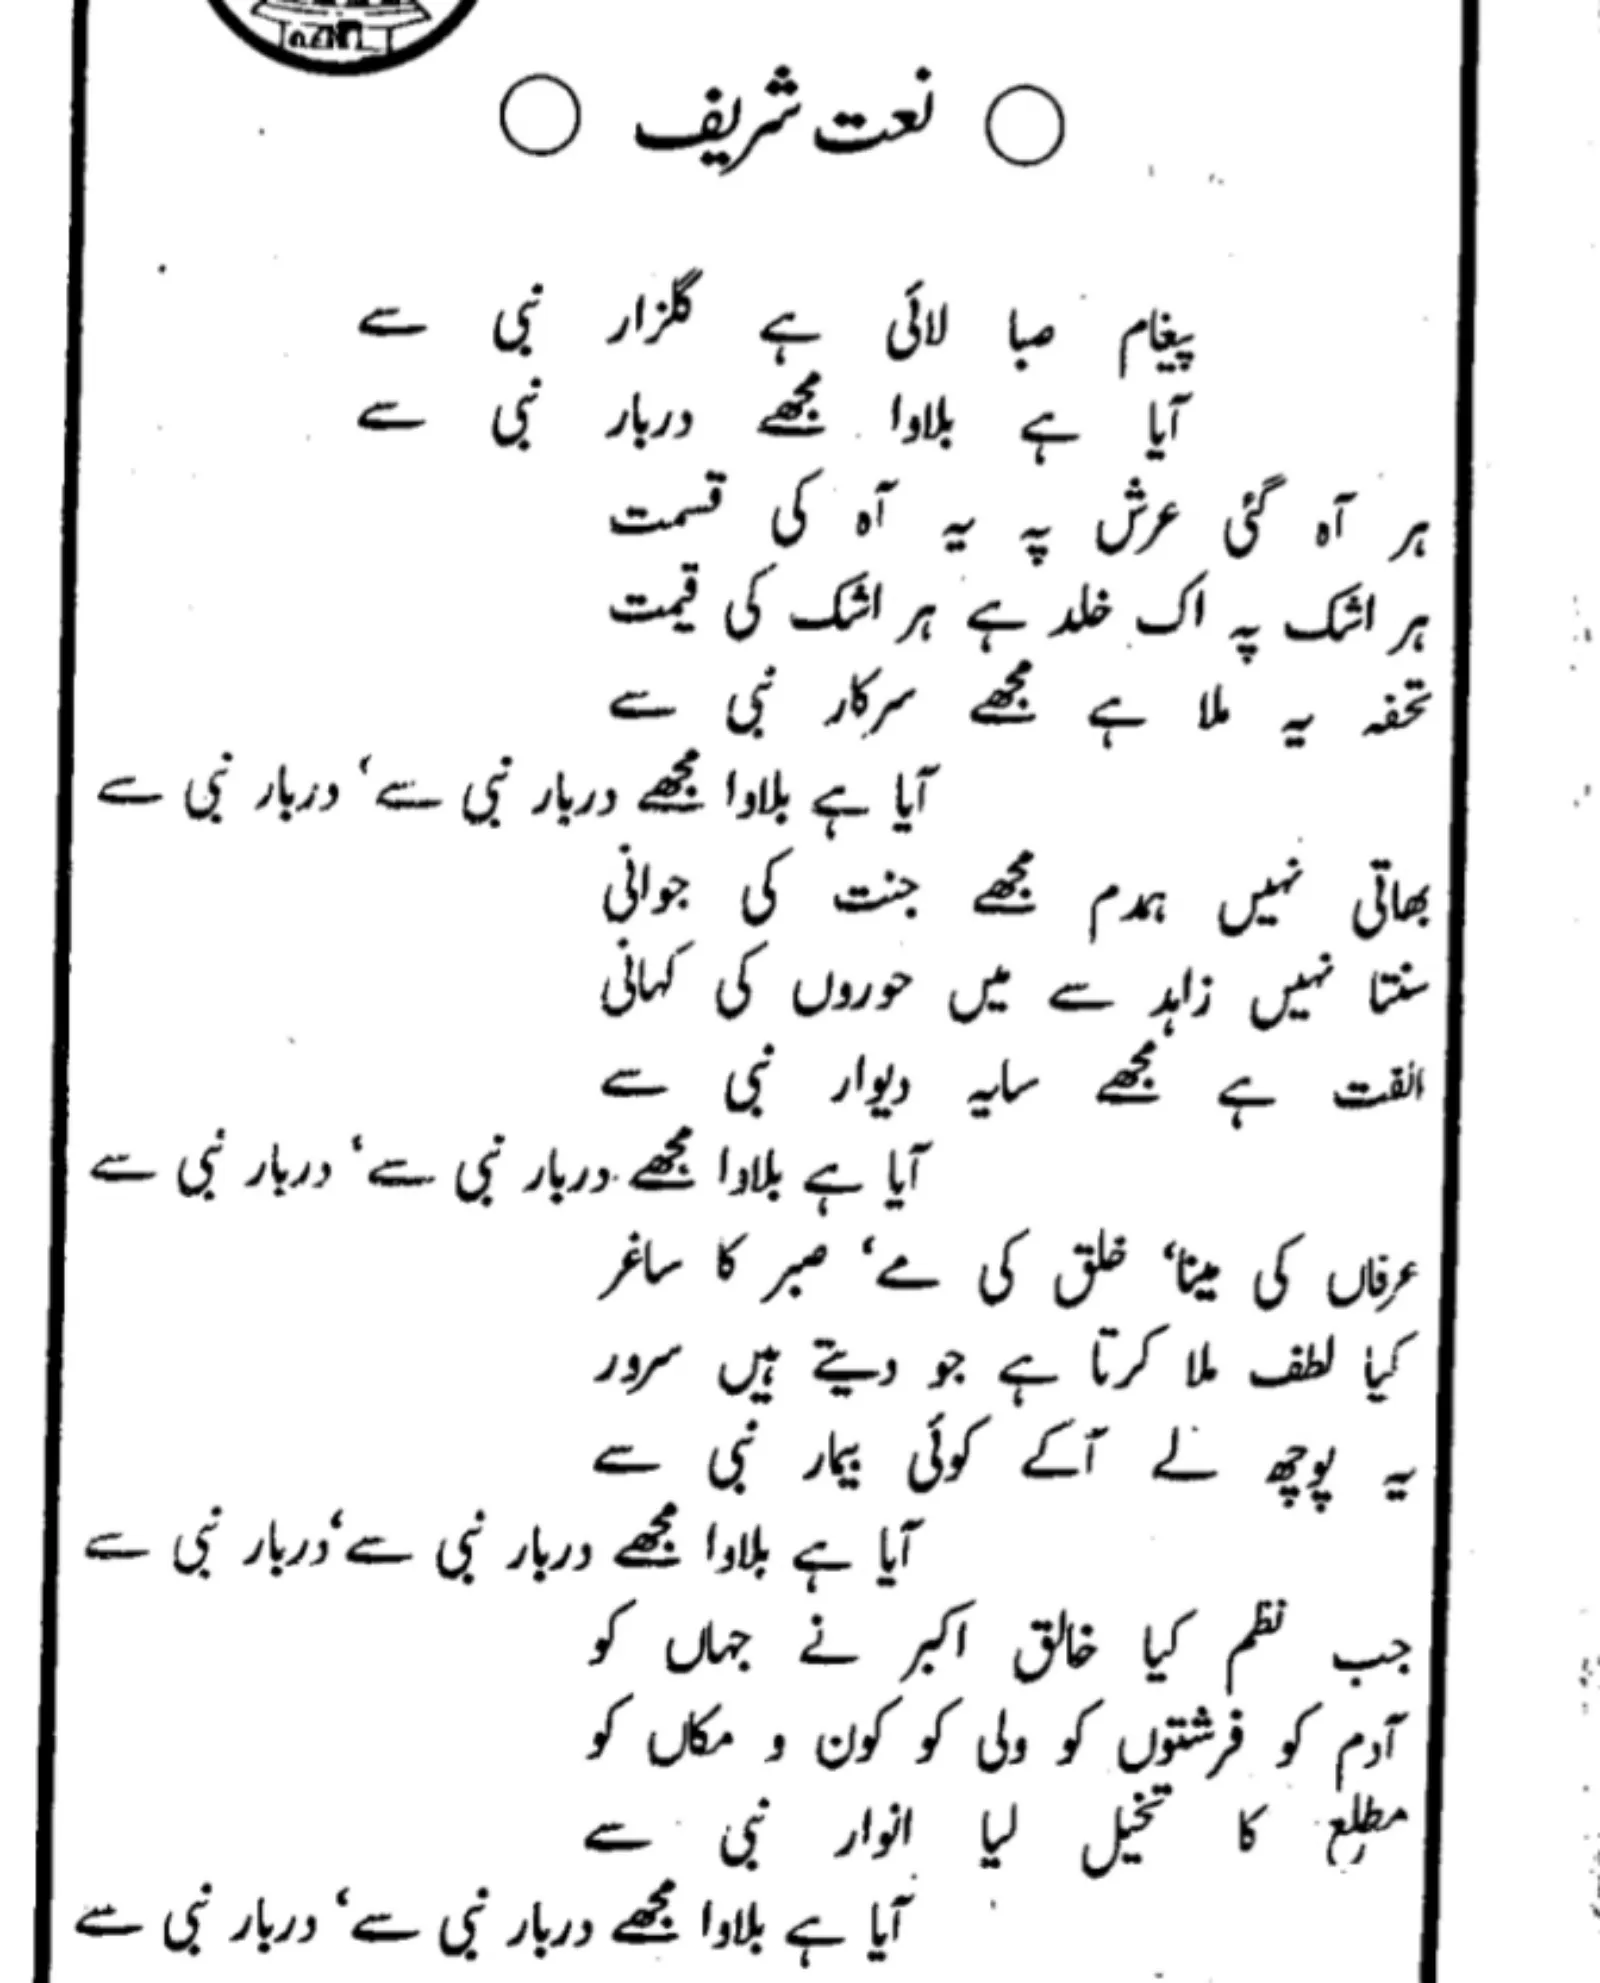 نعت شریف
پیغام صبا لائی ہے گلزار نبی سے
آیا ہے بلاوا مجھے دربار نبی سے
ہر آہ گئی عرش پہ یہ آہ کی قسمت
ہر اشک پہ اک خلد ہے ہر اشک کی قیمت
تحفہ یہ ملا ہے مجھے سرکار نبی سے
آیا ہے بلاوا مجھے دربار نبی سے‘ دربار نبی سے
بھاتی نہیں ہمدم مجھے جنت کی جوانی
سنتا نہیں زاہد سے میں حوروں کی کہانی
الفت ہے مجھے سایہ دیوار نبی سے
آیا ہے بلاوا مجھے دربار نبی سے‘ دربار نبی سے
عرفاں کی مینا‘ خلق کی مے‘ صبر کا ساغر
کیا لطف ملا کرتا ہے جو دیتے ہیں سرور
یہ پوچھ لے آکے کوئی بیمار نبی سے
آیا ہے بلاوا مجھے دربار نبی سے‘ دربار نبی سے
جب نظم کیا خالق اکبر نے جہاں کو
آدم کو فرشتوں کو ولی کو کون و مکاں کو
مطلع کا تخیل لیا انوار نبی سے
آیا ہے بلاوا مجھے دربار نبی سے‘ دربار نبی سے